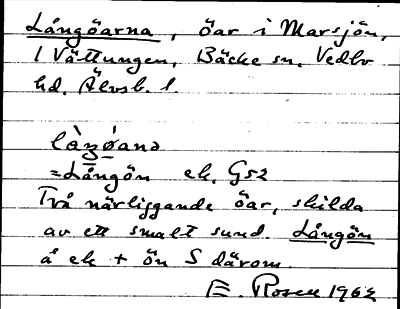 Långöarna, öar i Marsjön,
l Vättungen, Bäcke sn, Vedbo
hd, Älvsb. l.
=Långön ek. G52
Två närliggande öar, skilda
av ett smalt sund. Långön
å ek + ön S därom.
E. Rosell 1962